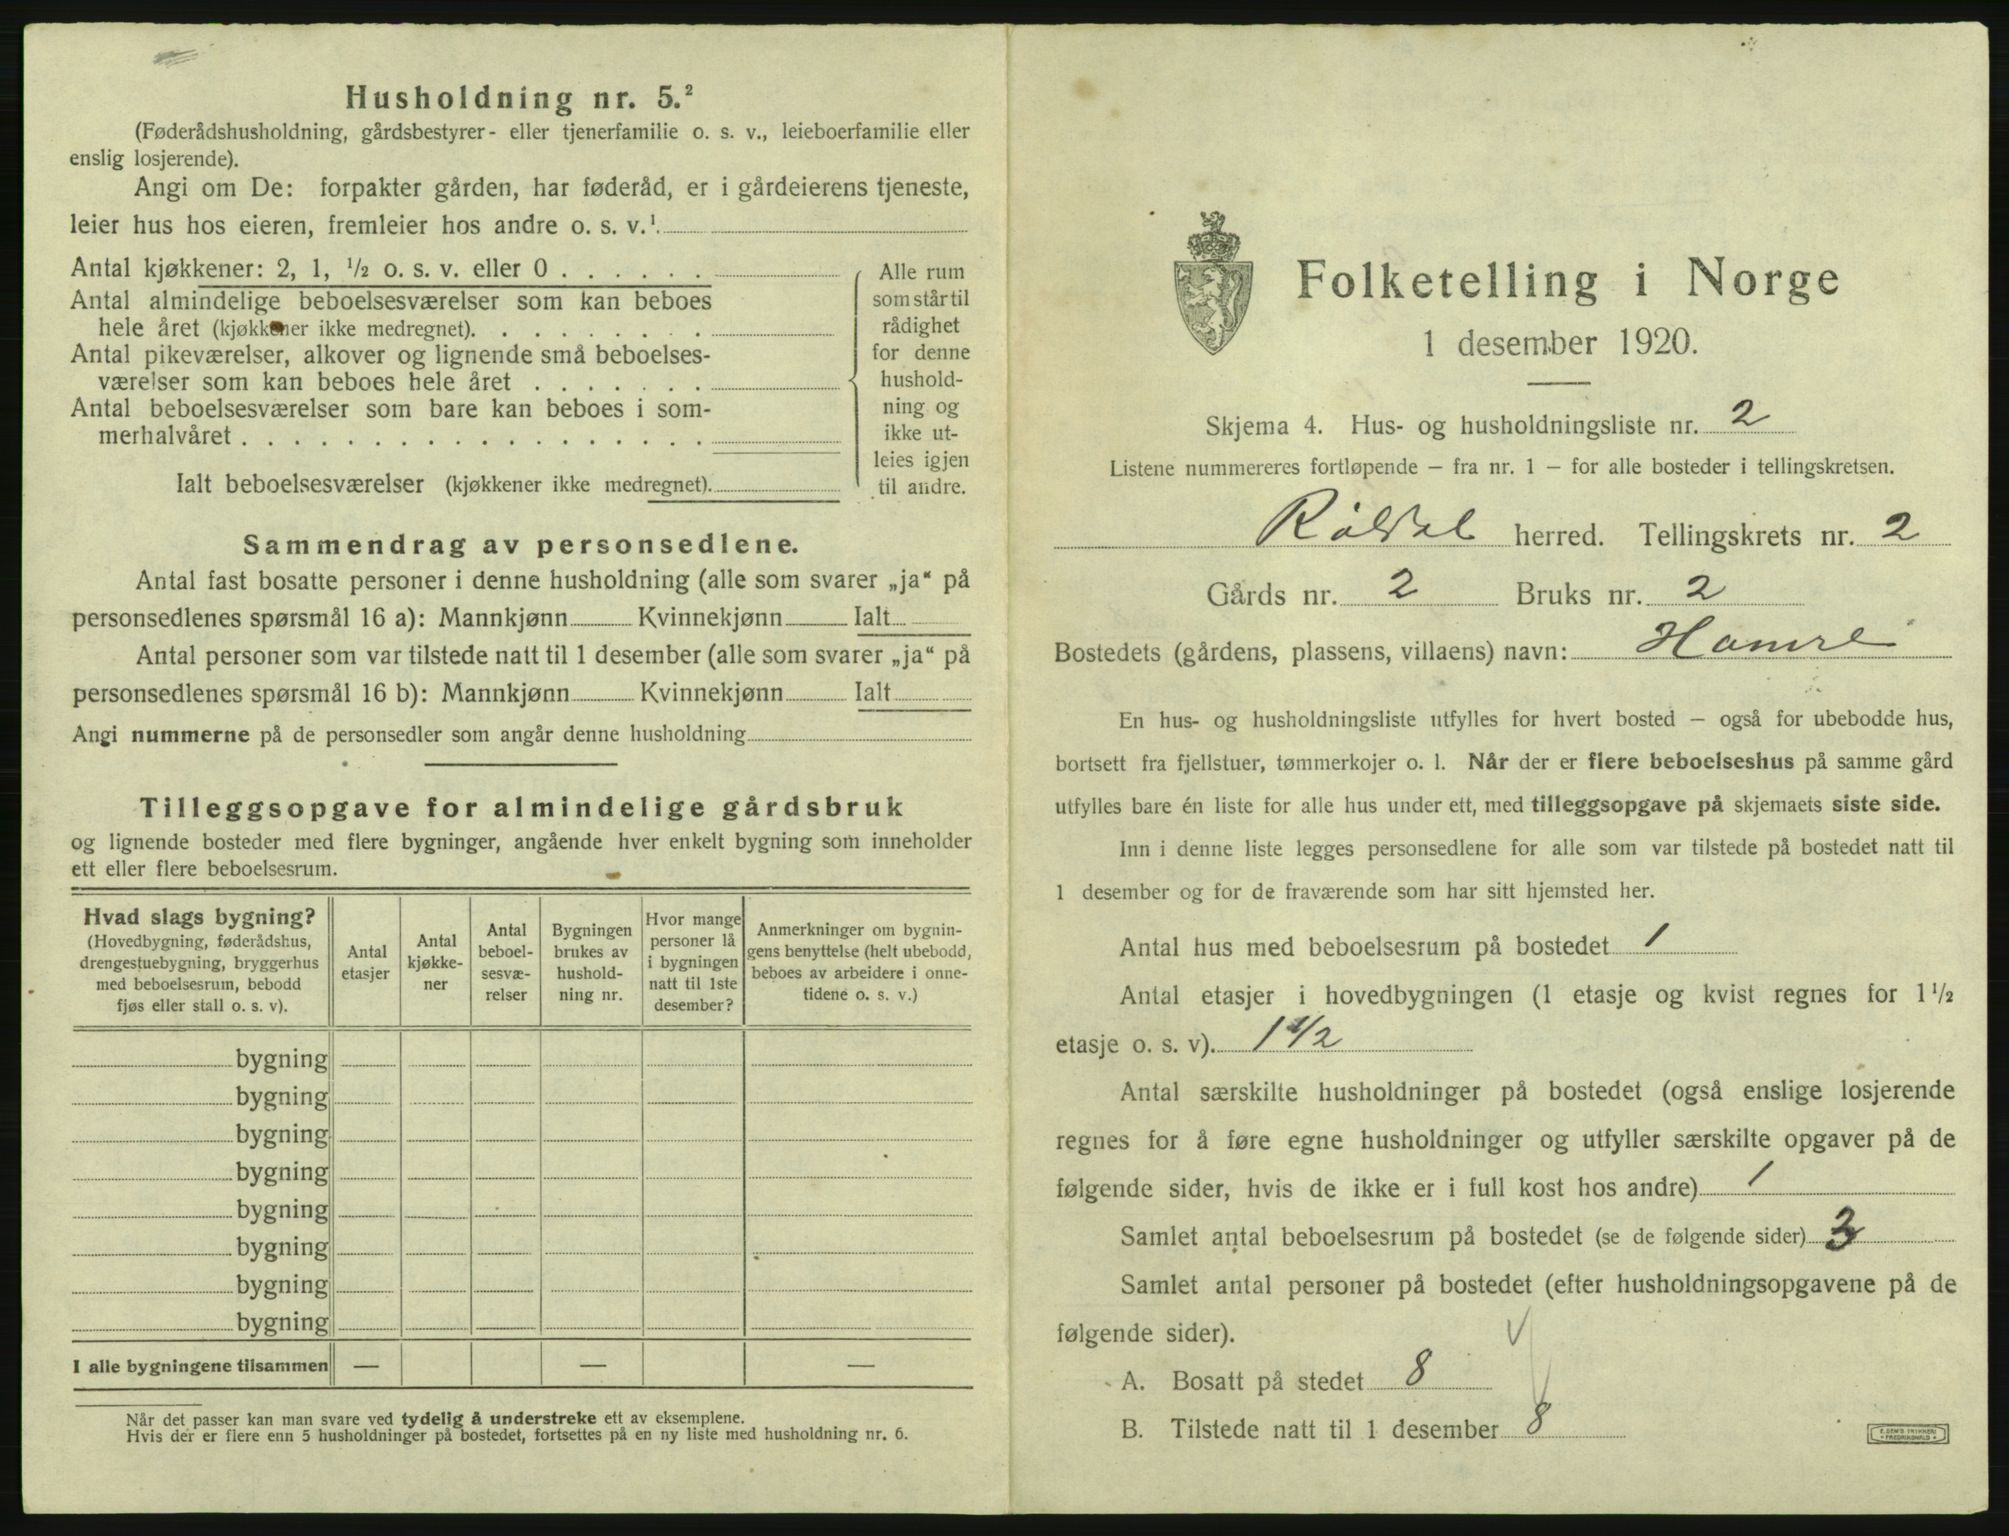 Husholdning nr. 5.²
(Føderådshusholdning, gårdsbestyrer- eller tjenerfamilie o. s. v., leieboerfamilie eller
enslig losjerende).
Angi om De: forpakter gården, har føderåd, er i gårdeierens tjeneste,
leier hus hos eieren, fremleier hos andre o. s. v.¹.
Antal kjøkkener: 2, 1, ½ o. s. v. eller 0 . . . . . .
Antal almindelige beboelsesværelser som kan beboes
hele året (kjøkkener ikke medregnet). . . . . . . . .
Antal pikeværelser, alkover og lignende små beboelses-
værelser som kan beboes hele året . . . . . . .
Antal beboelsesværelser som bare kan beboes i som-
merhalvåret . . . . . . . . . . . . . . . . . .
Ialt beboelsesværelser (kjøkkener ikke medregnet).
Alle rum
som står til
rådighet
for denne
hushold-
ning og
ikke ut-
leies igjen
til andre.
Sammendrag av personsedlene.
Antal fast bosatte personer i denne husholdning (alle som svarer „ja“ på
personsedlenes spørsmål 16 a): Mannkjønn Kvinnekjønn Ialt
Antal personer som var tilstede natt til 1 desember (alle som svarer „ja“ på
personsedlenes spørsmål 16 b): Mannkjønn Kvinnekjønn Ialt
Angi nummerne på de personsedler som angår denne husholdning
Tilleggsopgave for almindelige gårdsbruk
og lignende bosteder med flere bygninger, angående hver enkelt bygning som inneholder
ett eller flere beboelsesrum.
Hvad slags bygning?
(Hovedbygning, føderådshus,
drengestuebygning, bryggerhus
med beboelsesrum, bebodd
fjøs eller stall o. s. v).
Antal
etasjer
Antal
kjøkke-
ner
Antal
beboel-
sesvæ-
relser
Bygningen
brukes av
hushold-
ning nr.
Hvor mange
personer lå
i bygningen
natt til 1ste
desember?
Anmerkninger om bygnin-
gens benyttelse (helt ubebodd,
beboes av arbeidere i onne-
tidene o. s. v.)
bygning
bygning
bygning
bygning
bygning
bygning
bygning
bygning
I alle bygningene tilsammen — — —
Når det passer kan man svare ved tydelig å understreke ett av eksemplene.
Hvis der er flere enn 5 husholdninger på bostedet, fortsettes på en ny liste med husholdning nr. 6.
Folketelling i Norge
1 desember 1920.
Skjema 4. Hus- og husholdningsliste nr. 2
Listene nummereres fortløpende — fra nr. 1 — for alle bosteder i tellingskretsen.
Røldal herred. Tellingskrets nr. 2
Gårds nr. 2 Bruks nr. 2
Bostedets (gårdens, plassens, villaens) navn: Hamre
En hus- og husholdningsliste utfylles for hvert bosted — også for ubebodde hus,
bortsett fra fjellstuer, tømmerkojer o. l. Når der er flere beboelseshus på samme gård
utfylles bare én liste for alle hus under ett, med tilleggsopgave på skjemaets siste side.
Inn i denne liste legges personsedlene for alle som var tilstede på bostedet natt til
1 desember og for de fraværende som har sitt hjemsted her.
Antal hus med beboelsesrum på bostedet 1
Antal etasjer i hovedbygningen (1 etasje og kvist regnes for 1½
etasje o. s. v). 1½
Antal særskilte husholdninger på bostedet (også enslige losjerende
regnes for å føre egne husholdninger og utfyller særskilte opgaver på de
følgende sider, hvis de ikke er i full kost hos andre) 1
Samlet antal beboelsesrum på bostedet (se de følgende sider) 3
Samlet antal personer på bostedet (efter husholdningsopgavene på de
følgende sider).
A. Bosatt på stedet 8
B. Tilstede natt til 1 desember 8